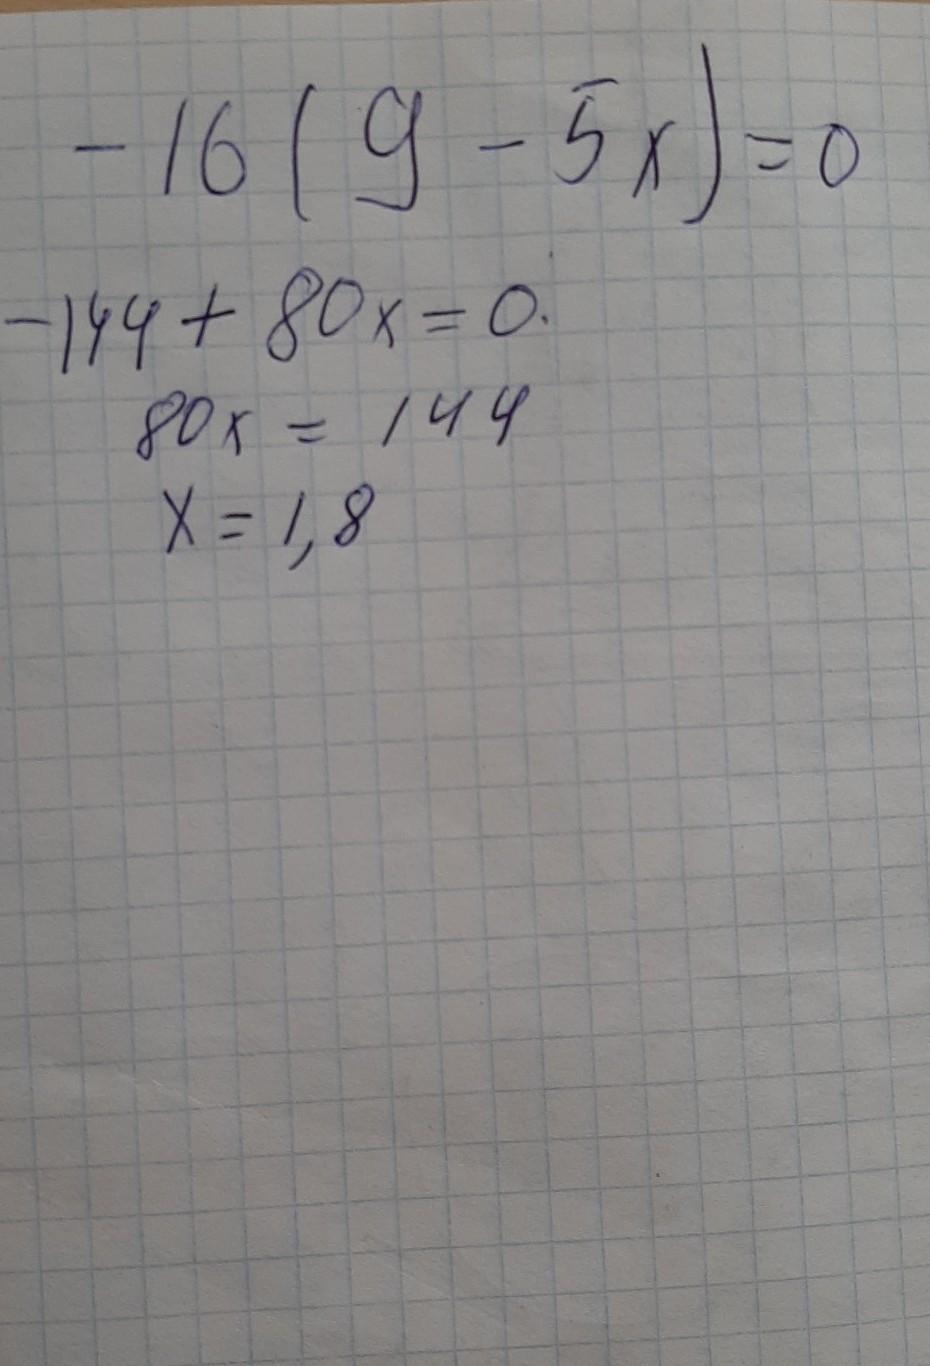 -16(9-5x)=0
-144+80x=0.
80x=144
x=1,8